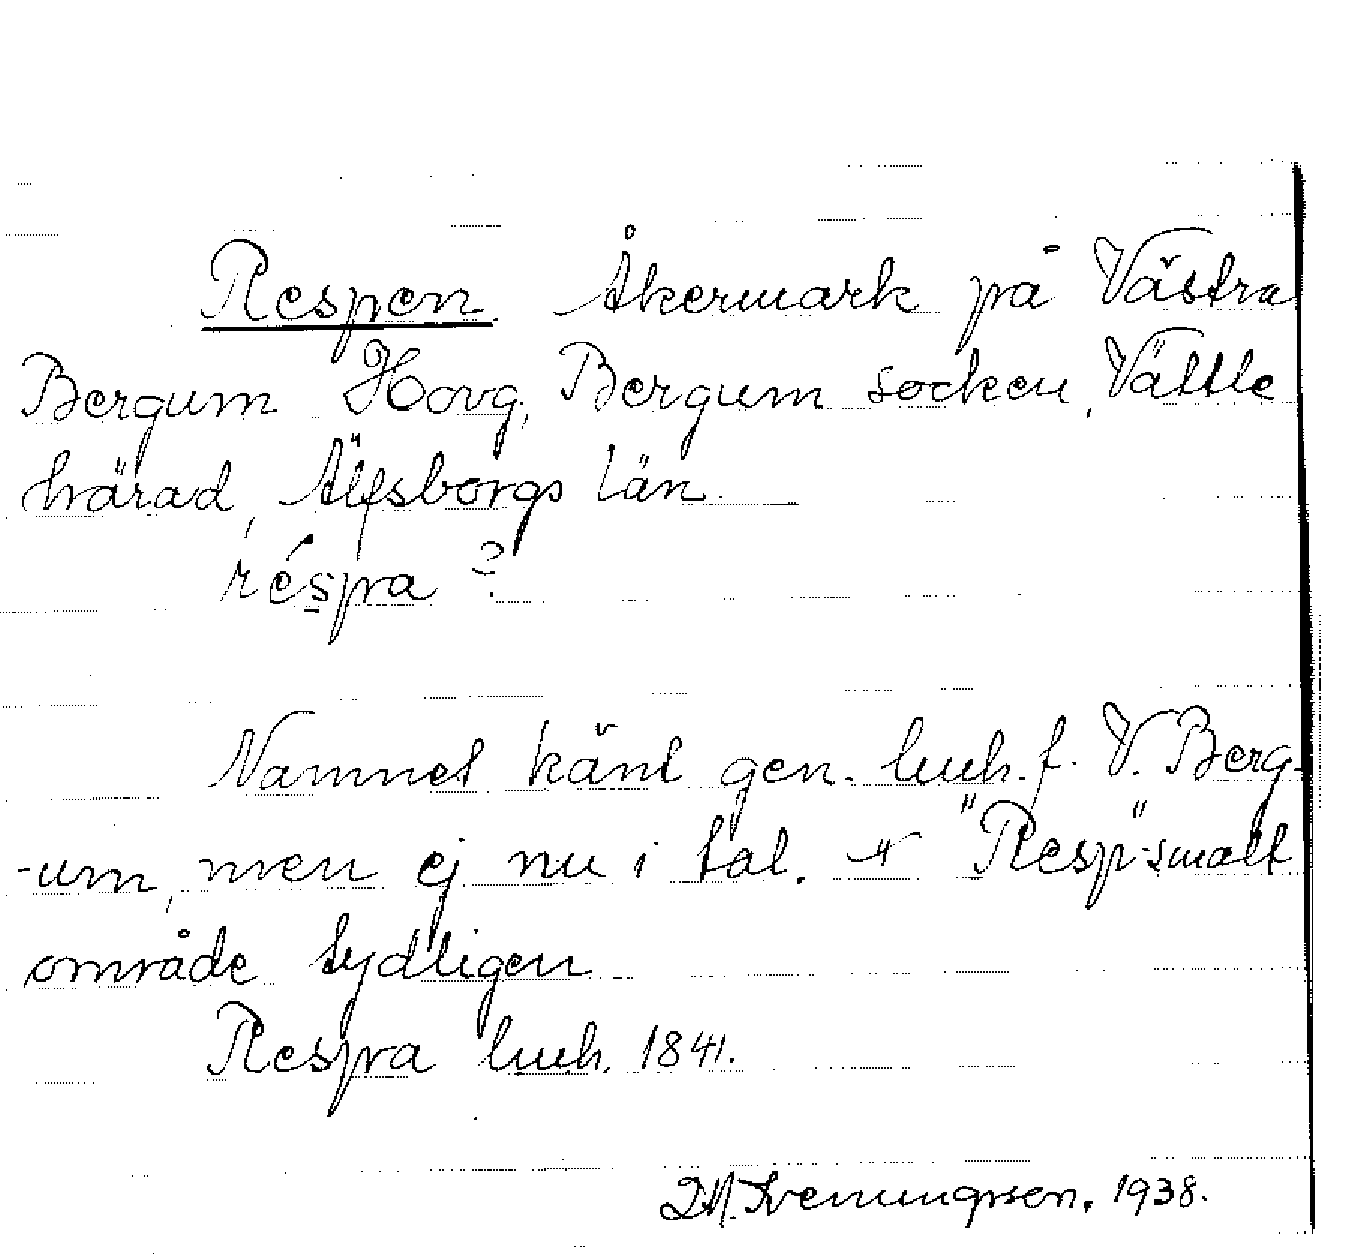 Respen. Åkermark på Västra
Bergum Hovg, Bergum socken, Vättle
härad, Älfsborgs län.
réspa ?
Namnet känt gen. luh. f. V. Berg-
-um, men ej nu i tal. "Resp"smalt
område tydligen
Respa luh. 1841.
1938.